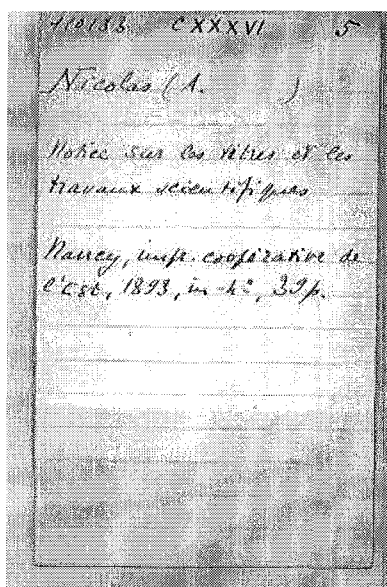 110133 CXXXVI 5
Nicolas (A. )
Notice sur les titres et les
travaux scientifiques
Nancy, impr. coopérative de
l'Est, 1893, in-4º, 39p.